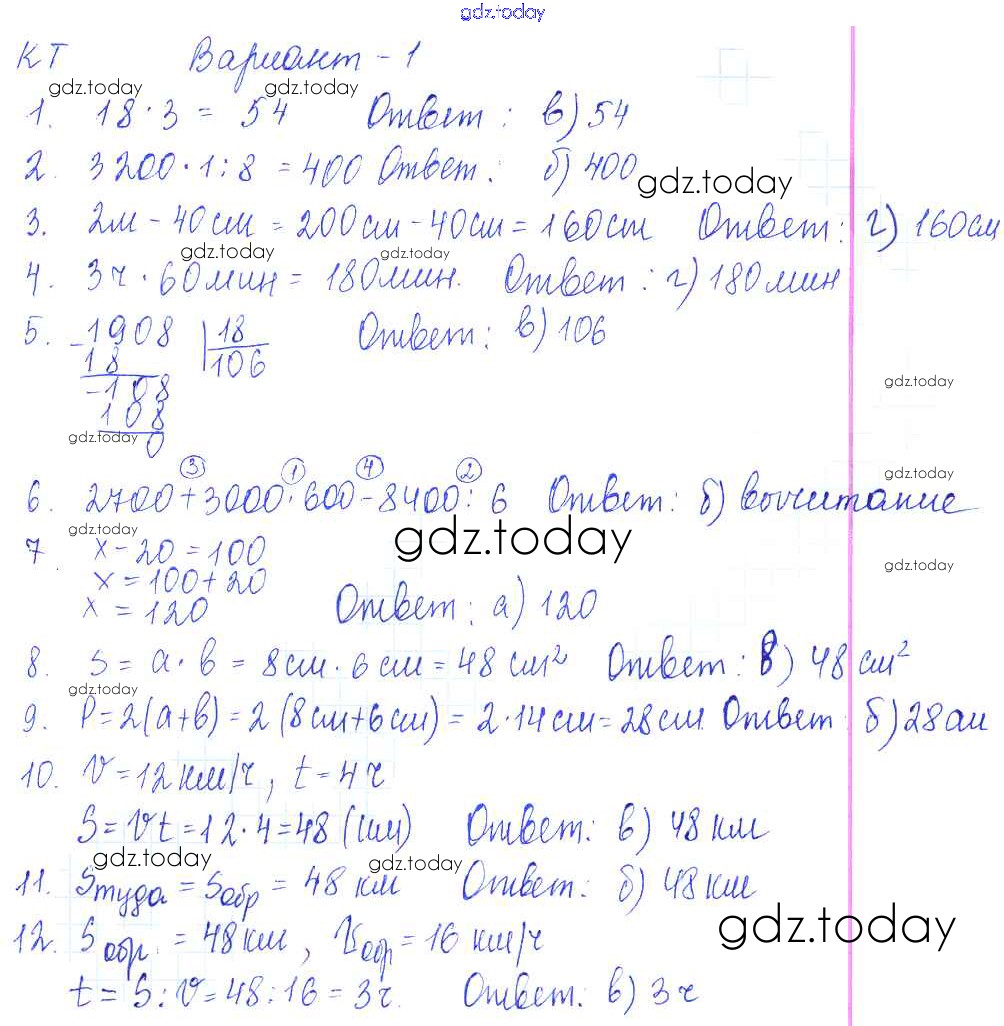 gdz.today
КТ Вариант - 1
gdz.today gdz.today
1. 18 · 3 = 54 Ответ: в) 54
2. 3200 · 1 : 8 = 400 Ответ: б) 400
gdz.today
3. 2м - 40см = 200см - 40см = 160см Ответ: г) 160см
gdz.today gdz.today
4. 3ч · 60мин = 180мин. Ответ: г) 180мин
5. - 1908 | 18 Ответ: в) 106
18 106
gdz.today
- 108
108
gdz.today
0
3 1 4 2
6. 2700 + 3000 · 600 - 8400 : 6 Ответ: б) вычитание
gdz.today gdz.today
7. x - 20 = 100
gdz.today
x = 100 + 20
x = 120 Ответ: а) 120
8. S = a · b = 8см · 6см = 48 см² Ответ: в) 48 см²
gdz.today
9. P = 2(a+b) = 2(8см+6см) = 2 · 14см = 28см. Ответ: б) 28см
10. v = 12км/ч, t = 4ч
S = vt = 12 · 4 = 48 (км) Ответ: в) 48 км
gdz.today gdz.today
11. Sтуда = Sобр = 48 км Ответ: б) 48км
gdz.today
12. Sобр. = 48км, Vобр = 16 км/ч
t = S : v = 48 : 16 = 3ч. Ответ: в) 3ч